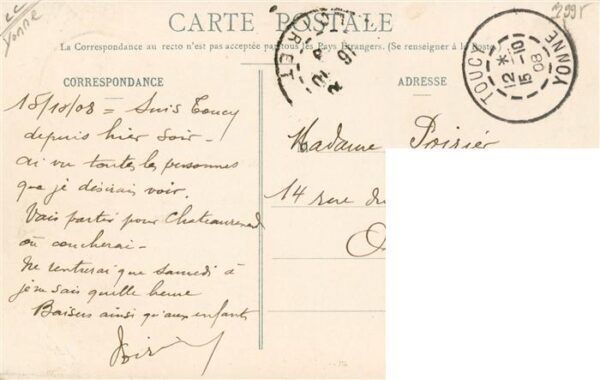 cc
Yonne
399F
CARTE POSTALE
La Correspondance au recto n'est pas acceptée par tous les Pays Etrangers. (Se renseigner à la Poste.)
CORRESPONDANCE
15/10/08 = Suis Toucy
depuis hier soir -
ai vu toutes les personnes
que je désirais voir.
Vais partir pour Chateaurenard
où coucherai -
Ne rentrerai que samedi à
je ne sais quelle heure
Baisers ainsi qu'aux enfants
ADRESSE
Madame Poirier
14 rue du
TOUCY
YONNE
12 *
15 -10
08
RET
16